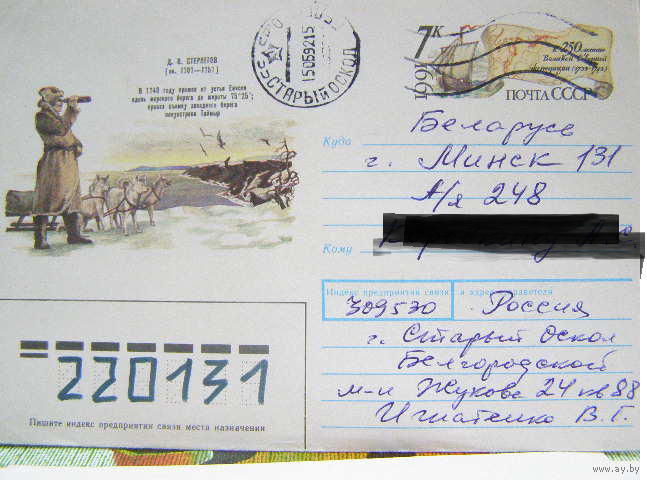 Д. В. СТЕРЛЕГОВ
(ок. 1707—1757)
В 1740 году прошел от устья Енисея
вдоль морского берега до широты 75°26';
провел съемку западного берега
полуострова Таймыр
СССР
150592 15
СТАРЫЙ ОСКОЛ
7 К
1991
К 250-летию
Великой Северной
экспедиции (1733—1743)
ПОЧТА СССР
Куда
Беларусь
г. Минск 131
А/я 248
Кому
Индекс предприятия связи и адрес отправителя
309530 Россия
г. Старый Оскол
Белгородской
м-н Жукова 24 кв 88
Игнатенко В. Г.
220131
Пишите индекс предприятия связи места назначения
www.ay.by